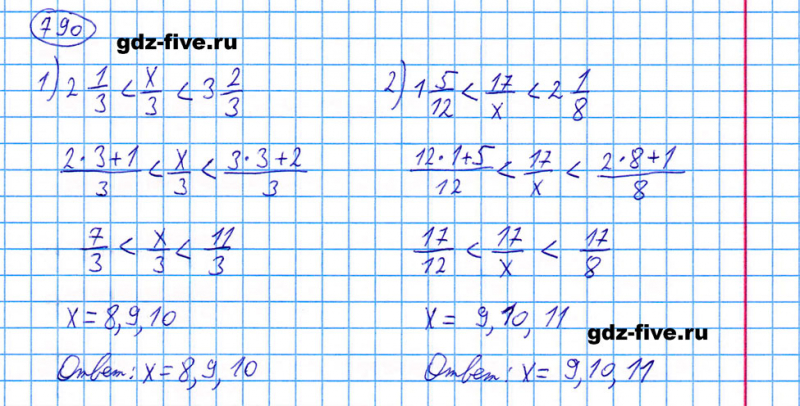 790
gdz-five.ru
1) 2 1/3 < x/3 < 3 2/3
(2·3+1)/3 < x/3 < (3·3+2)/3
7/3 < x/3 < 11/3
x = 8, 9, 10
Ответ: x = 8, 9, 10
2) 1 5/12 < 17/x < 2 1/8
(12·1+5)/12 < 17/x < (2·8+1)/8
17/12 < 17/x < 17/8
x = 9, 10, 11
gdz-five.ru
Ответ: x = 9, 10, 11